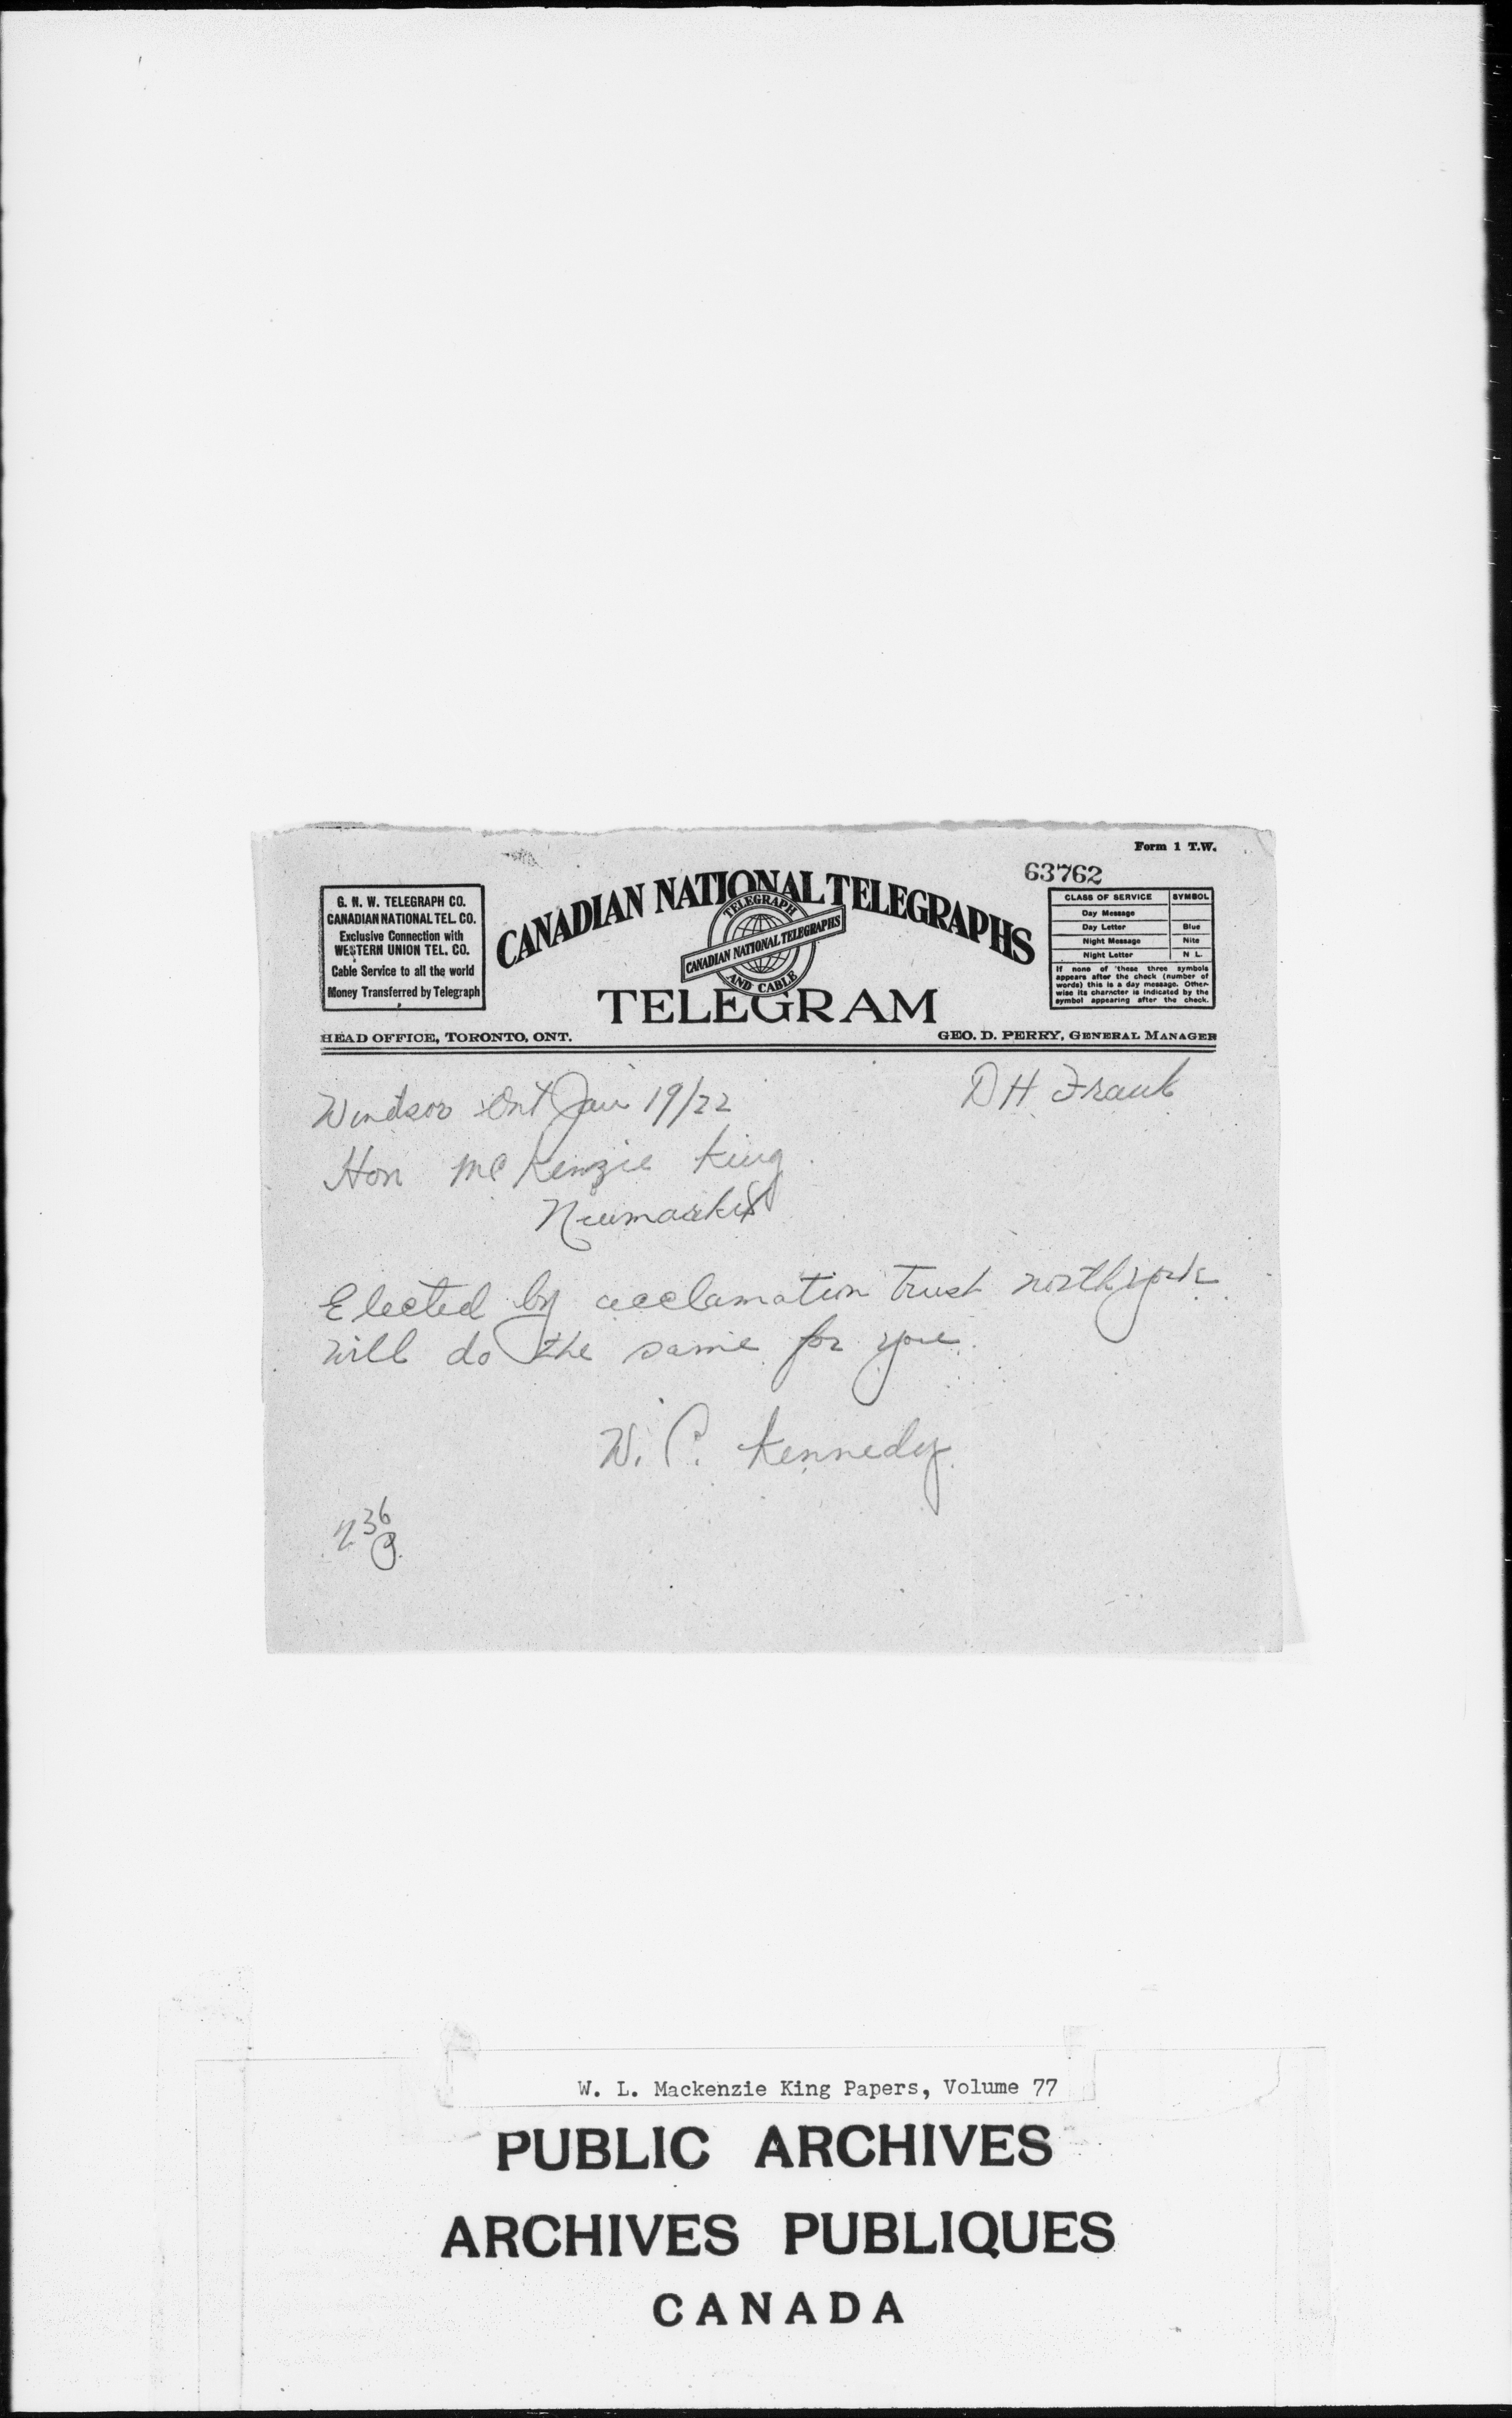 Form 1 T.W.
63762
G. N. W. TELEGRAPH CO.
CANADIAN NATIONAL TEL. CO.
Exclusive Connection with
WESTERN UNION TEL. CO.
Cable Service to all the world
Money Transferred by Telegraph
CANADIAN NATIONAL TELEGRAPHS
TELEGRAPH
CANADIAN NATIONAL TELEGRAPHS
AND CABLE
TELEGRAM
CLASS OF SERVICE SYMBOL
Day Message
Day Letter Blue
Night Message Nite
Night Letter N L
If none of these three symbols
appears after the check (number of
words) this is a day message. Other-
wise its character is indicated by the
symbol appearing after the check.
HEAD OFFICE, TORONTO, ONT. GEO. D. PERRY, GENERAL MANAGER
Windsor Ont Jan 19/22 DH Frank
Hon McKenzie King
Newmarket
Elected by acclamation trust north york
will do the same for you
W. C. Kennedy
236
P.
W. L. Mackenzie King Papers, Volume 77
PUBLIC ARCHIVES
ARCHIVES PUBLIQUES
CANADA